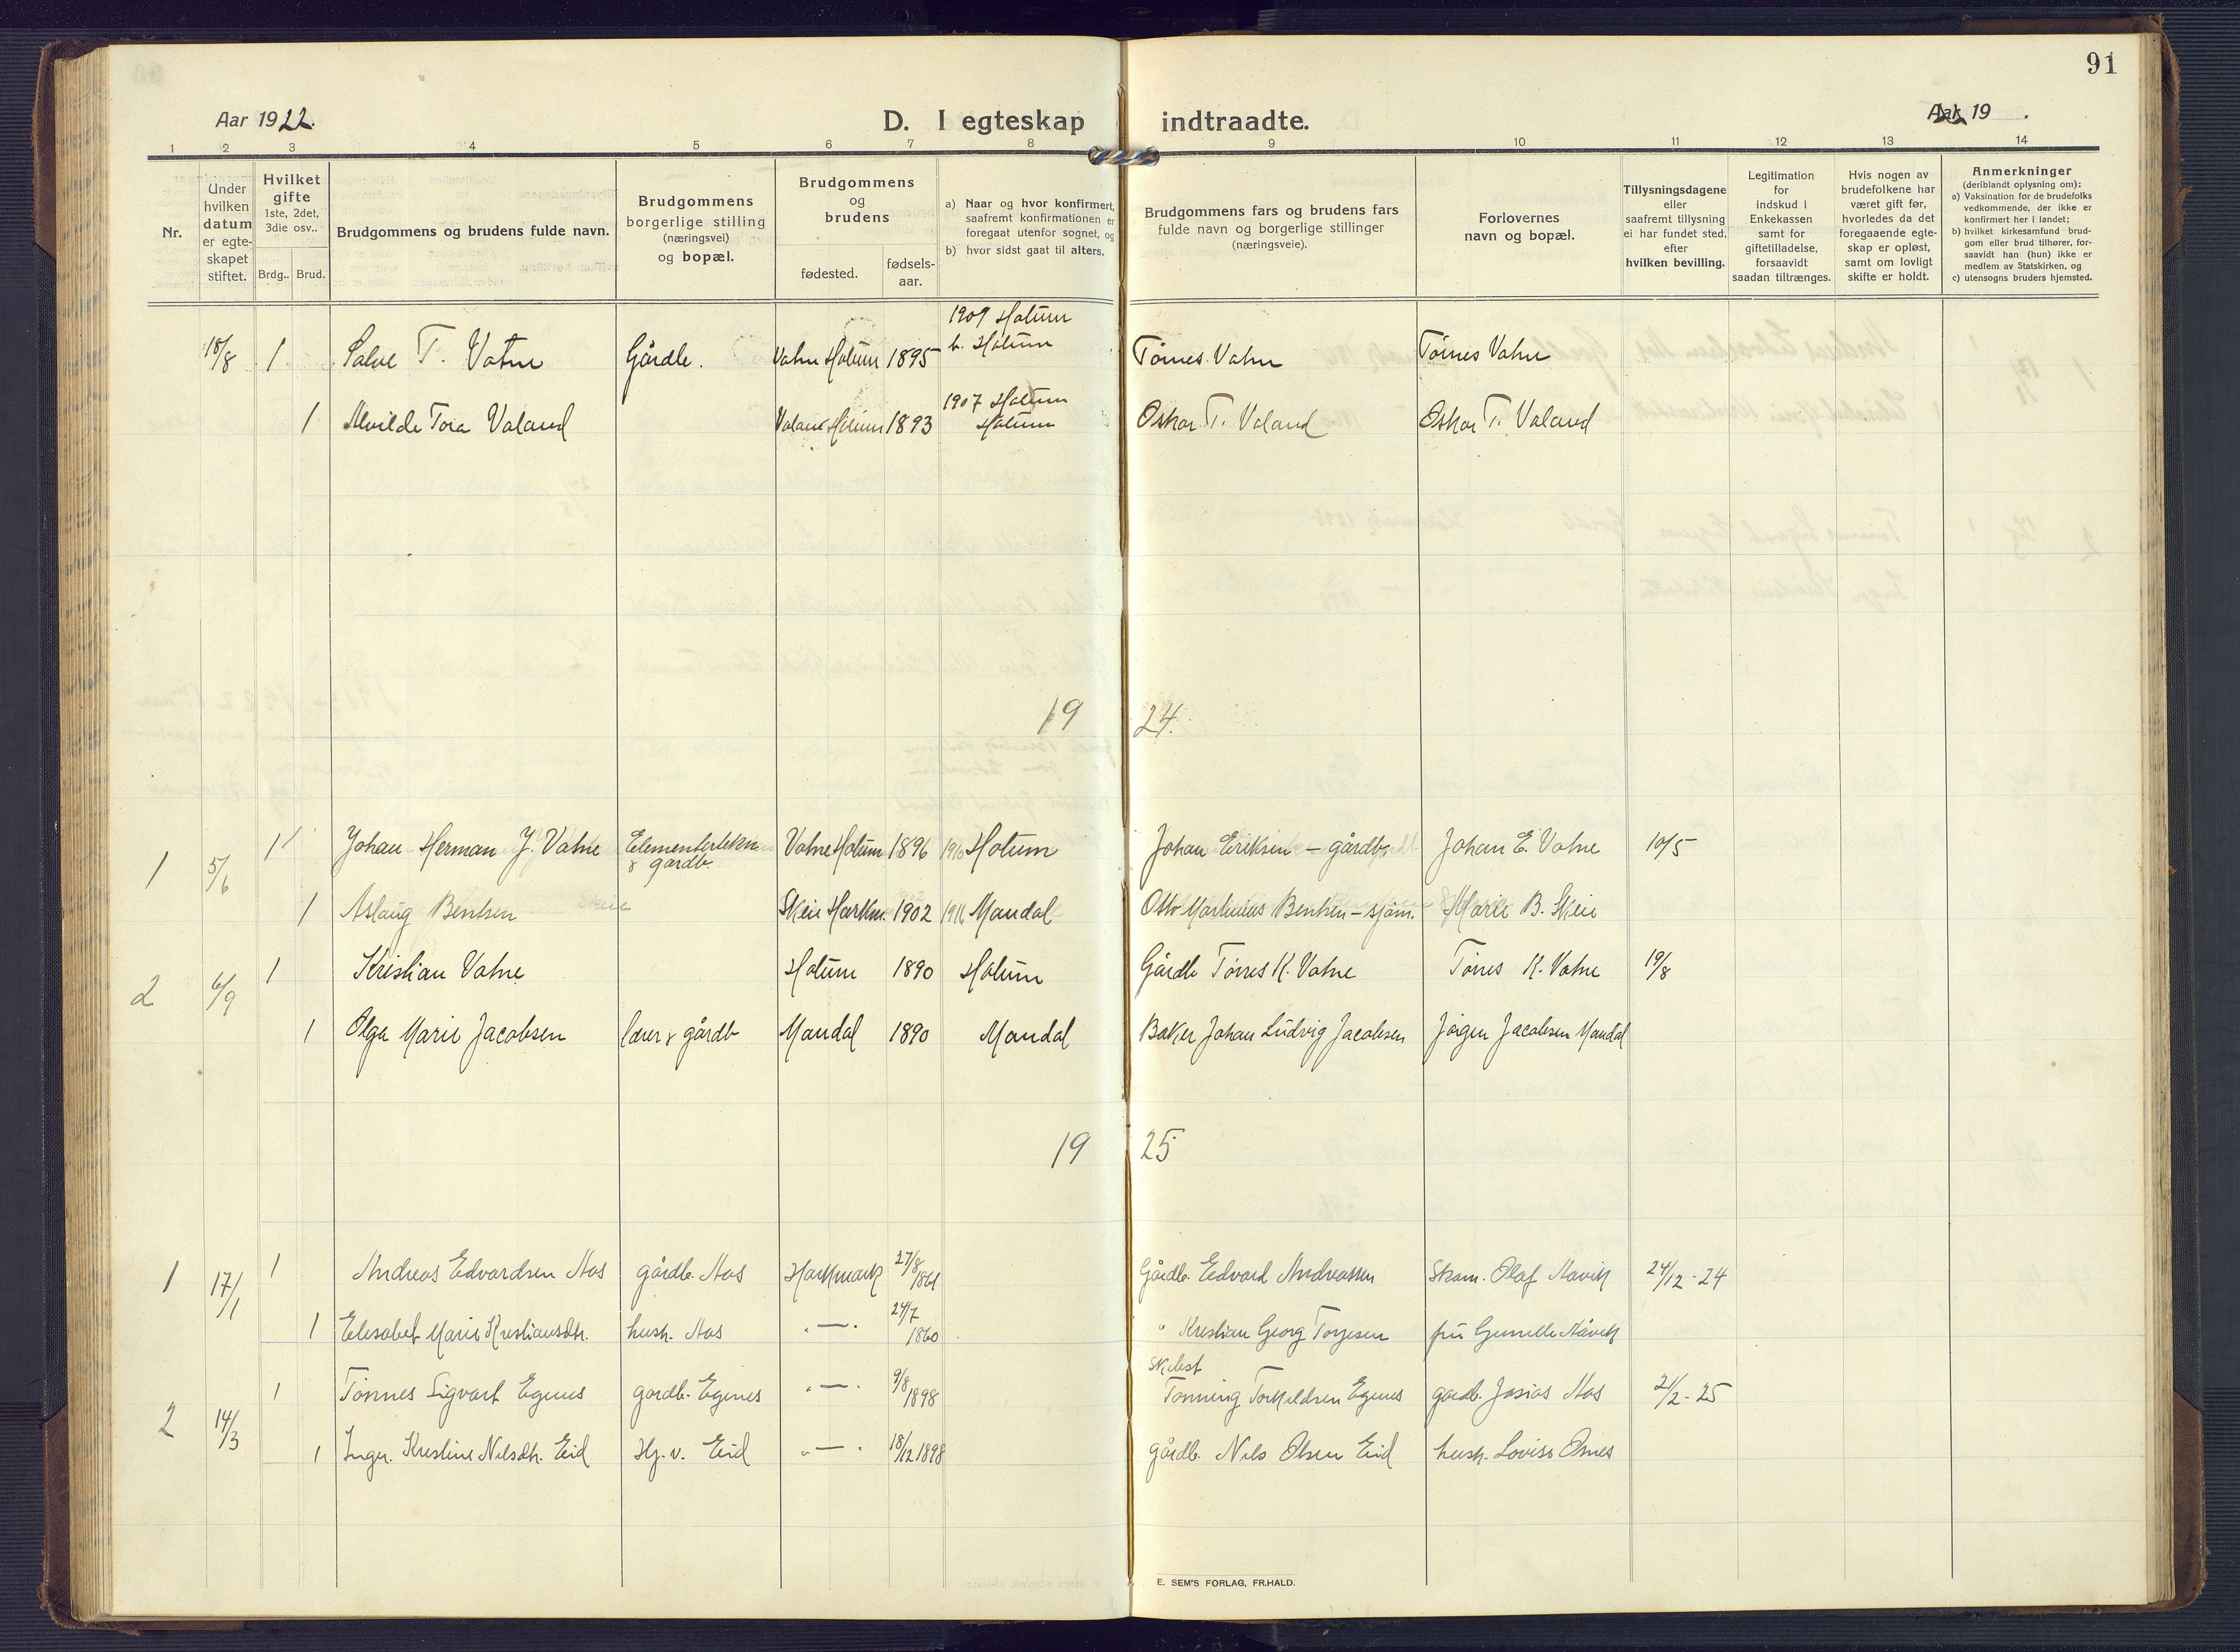 91
Aar 1922.
D. I egteskap indtraadte.
Aar 19 .
1 2 3 4 5 6 7 8 9 10 11 12 13 14
Nr.
Under hvilken datum er egte-skapet stiftet.
Hvilket gifte
1ste, 2det, 3die osv..
Brdg.. Brud.
Brudgommens og brudens fulde navn.
Brudgommens borgerlige stilling (næringsvei) og bopæl.
Brudgommens og brudens
fødested.
fødsels-aar.
a) Naar og hvor konfirmert, saafremt konfirmationen er foregaat utenfor sognet, og
b) hvor sidst gaat til alters.
Brudgommens fars og brudens fars fulde navn og borgerlige stillinger (næringsveie).
Forlovernes navn og bopæl.
Tillysningsdagene eller saafremt tillysning ei har fundet sted, efter hvilken bevilling.
Legitimation for indskud i Enkekassen samt for giftetilladelse, forsaavidt saadan tiltrænges.
Hvis nogen av brudefolkene har været gift før, hvorledes da det foregaaende egte-skap er opløst, samt om lovligt skifte er holdt.
Anmerkninger
(deriblandt oplysning om):
a) Vaksination for de brudefolks vedkommende, der ikke er konfirmert her i landet;
b) hvilket kirkesamfund brud-gom eller brud tilhører, for-saavidt han (hun) ikke er medlem av Statskirken, og
c) utensogns bruders hjemsted.
18/8 1 Salve T. Vatne Gårdb. Vatne Holum 1895 1909 Holum b. Holum Tönnes Vatne Tönnes Vatne
1 Alvilde Tora Valand Valand Holum 1893 1907 Holum Holum Oskar T. Valand Oskar T. Valand
19 24.
1 5/6 1 Johan Herman J. Vatne & gardb. Vatne Holum 1896 1910 Holum Johan Eriksen - gårdb. Johan E. Vatne 10/5
1 Aslaug Bentsen Skeie Skeie Harkm. 1902 1916 Mandal Otto Matheus Bentsen - sjøm. Marie B. Skeie
2 6/9 1 Kristian Vatne Holum 1890 Holum Gårdb Tönnes K. Vatne Tönnes K. Vatne 19/8
1 Olga Marie Jacobsen lærer & gårdb Mandal 1890 Mandal Baker Johan Ludvig Jacobsen Jörgen Jacobsen Mandal
19 25
1 17/1 1 Andreas Edvardsen Aas gårdb. Aas Harkmark 27/8 1861 Gårdb. Edvard Andreassen Skom. Olaf Aavik 24/12-24
1 Elisabet Marie Kristiansdtr. hush. Aas " — " 24/7 1860 " Kristian Georg Torjesen fru Gunelle Aavik
2 14/3 1 Tönnes Sigvart Egenes gardb. Egenes " — " 9/8 1898 Skibst Tønning Torkeldsen Egenes gardb. Josias Aas 21/2-25
1 Inga Kristine Nilsdtr. Eid Hj. v. Eid " — " 18/12 1898 gårdb. Nils Olsen Eid hush. Lovise Osnes
E. SEM'S FORLAG, FR.HALD.